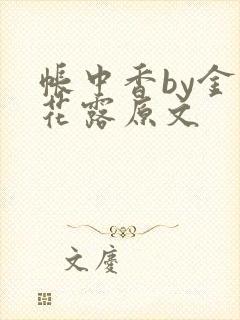 帐中香by金
花露原文
文庆